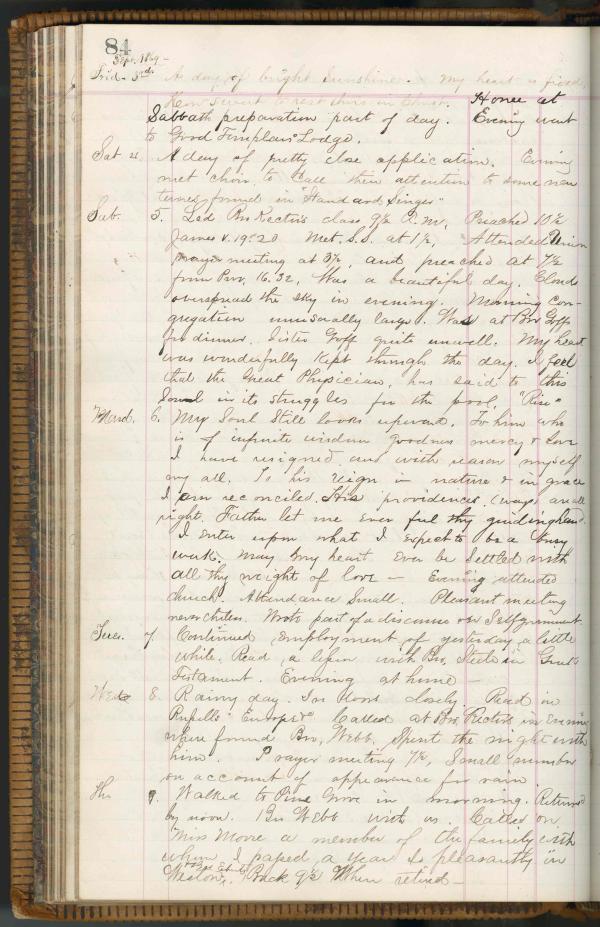 84
Sept. 1869 –
Frid – 3rd. A day of bright Sunshine. My heart is fixed,
How sweet to rest there in Christ. Home at
Sabbath preparation part of day. Evening went
to Good Templars' Lodge.
Sat 4. A day of pretty close application. Evening
met choir, to call their attention to some new
tunes found in "Standard Singer"
Sab. 5. Led Bro Rector's class 9½ A.M. Preached 10½
James V. 19-20 Met. S.S. at 1½, Attended Union
prayer meeting at 3½, and preached at 7½
from Prov. 16.32. Was a beautiful day. Clouds
overspread the sky in evening. Morning con-
gregation unusually large. Was at Bro Goffs
for dinner. Sister Goff quite unwell. My heart
was wonderfully kept through the day. I feel
that the Great Physician, has said to this
Soul in its struggles for the pool, "Rise"
Mond. 6. My Soul Still looks upward. To him who
is of infinite wisdom goodness mercy & love
I have resigned and with reason myself
my all. To his reign in nature & in grace
I am reconciled. His providences (ways) are all
right. Father let me ever feel thy guiding hand.
I enter upon what I expect to be a busy
week. May my heart ever be Settled with
all thy weight of love – Evening attended
church. Attendance Small. Pleasant meeting
nevertheless. Wrote part of a discourse on Self government.
Tues. 7 Continued employment of yesterday a little
while. Read a lesson with Bro. Steele in Greek
Testament. Evening at home –
Wed 8. Rainy day. In doors closely. Read in
Russells' Europe" Called at Bro Rectors in evening
where found Bro, Webb, Spent the night with
him. Prayer meeting 7½, Small number
on account of appearance for rain
Thu 9. Walked to Pine Grove in morning. Returned
by noon. Bro Webb with us. Called on
Miss Moore a member of the family with
whom I passed a year so pleasantly in
Weston, Back 9½ When retired –